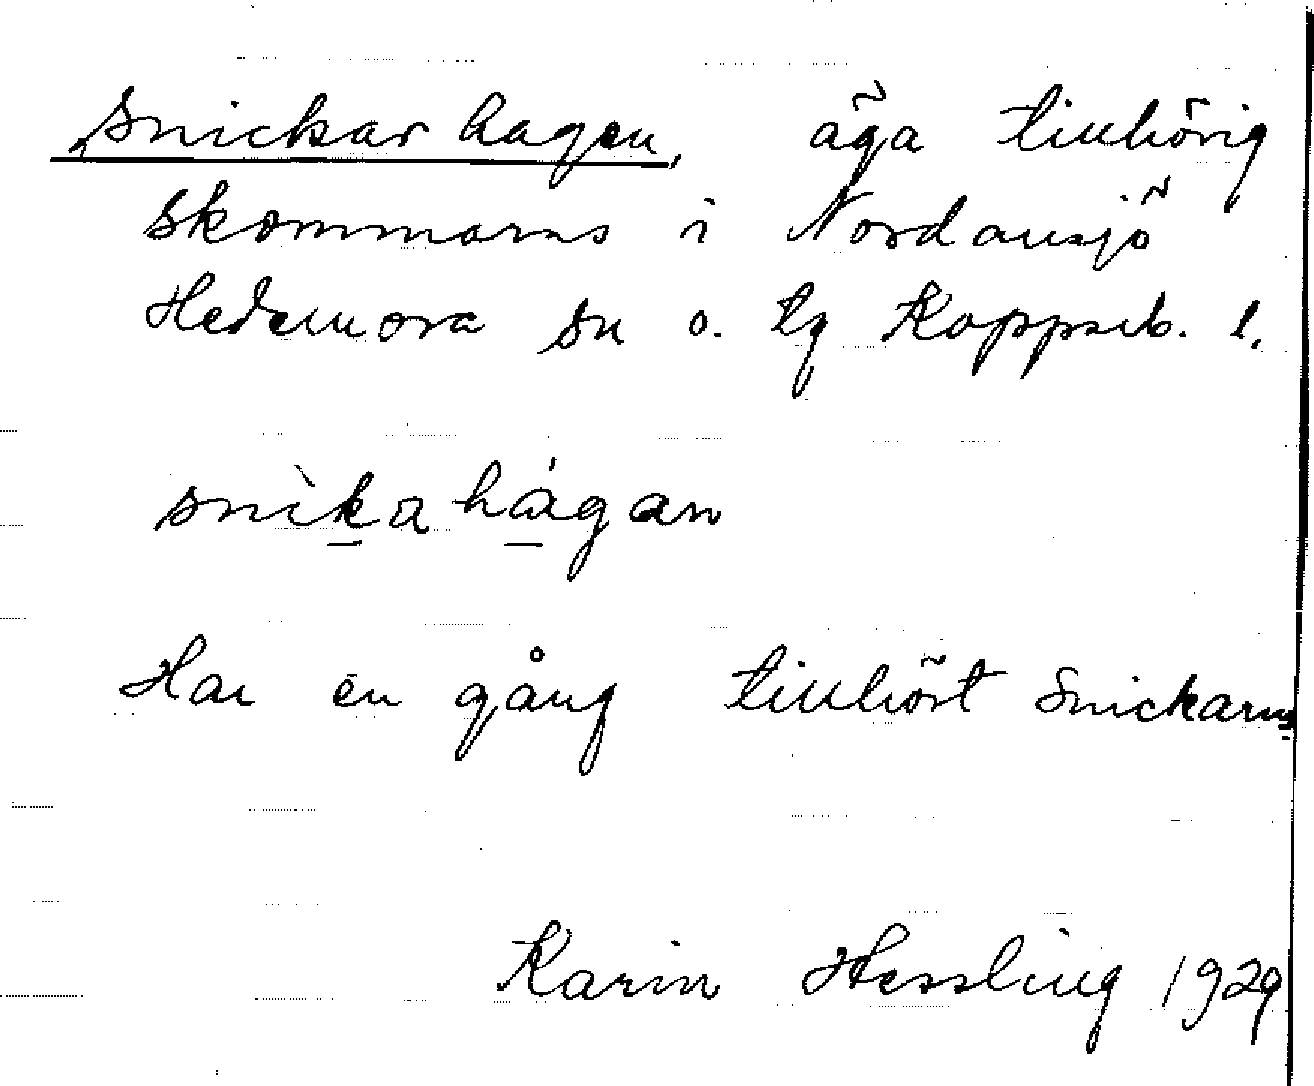 Snickarhagen, äga tillhörig
Skommarns i Nordansjö
Hedemora sn o. tg Kopparb. l.
snìkahágan
Har en gång tillhört Snickarns
Karin Hessling 1929